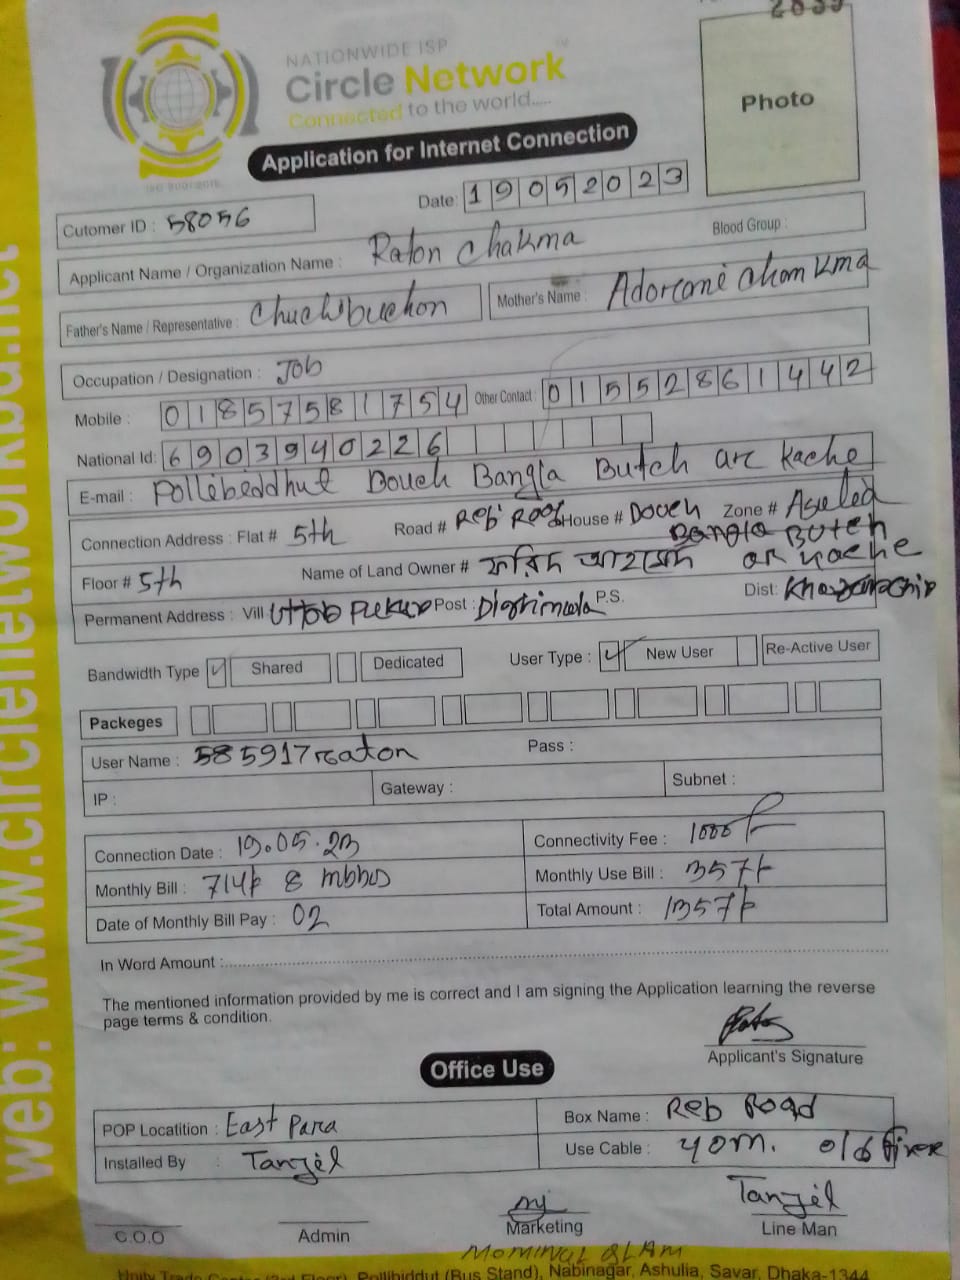 NATIONWIDE ISP
Circle Network
Connected to the world.....
ISO 9001:2015
Application for Internet Connection
Photo
Date: 19052023
Cutomer ID : 58056
Blood Group :
Applicant Name / Organization Name : Raton Chakma
Father's Name / Representative : Chuchibuchon Mother's Name :
Occupation / Designation : Job
Mobile : 01857581754 Other Contact : 01552861442
National Id: 6903940226
E-mail : Pollibeddhut Douch Bangla Butch arc kache
Connection Address : Flat # 5th Road # Reb Road House # Douch Zone #
Bangla Butch
Floor # 5th Name of Land Owner # ফরিদ আহমেদ ar kache
Permanent Address : Vill Post : Dighinala P.S. Dist:
Bandwidth Type Shared Dedicated User Type : New User Re-Active User
Packeges
User Name : 585917raton Pass :
IP : Gateway : Subnet :
Connection Date : 19.05.23 Connectivity Fee : 1000
Monthly Bill : 714 8 Monthly Use Bill : 357
Date of Monthly Bill Pay : 02 Total Amount : 1357
In Word Amount :
The mentioned information provided by me is correct and I am signing the Application learning the reverse
page terms & condition.
Applicant's Signature
Office Use
POP Locatition : East Para Box Name : Reb Road
Installed By : Tanjil Use Cable : 40m. old
Tanjil
C.O.O Admin Marketing Line Man
(Bus Stand), Nabinagar, Ashulia, Savar, Dhaka-1344
web: www.circlenetworkbd.net